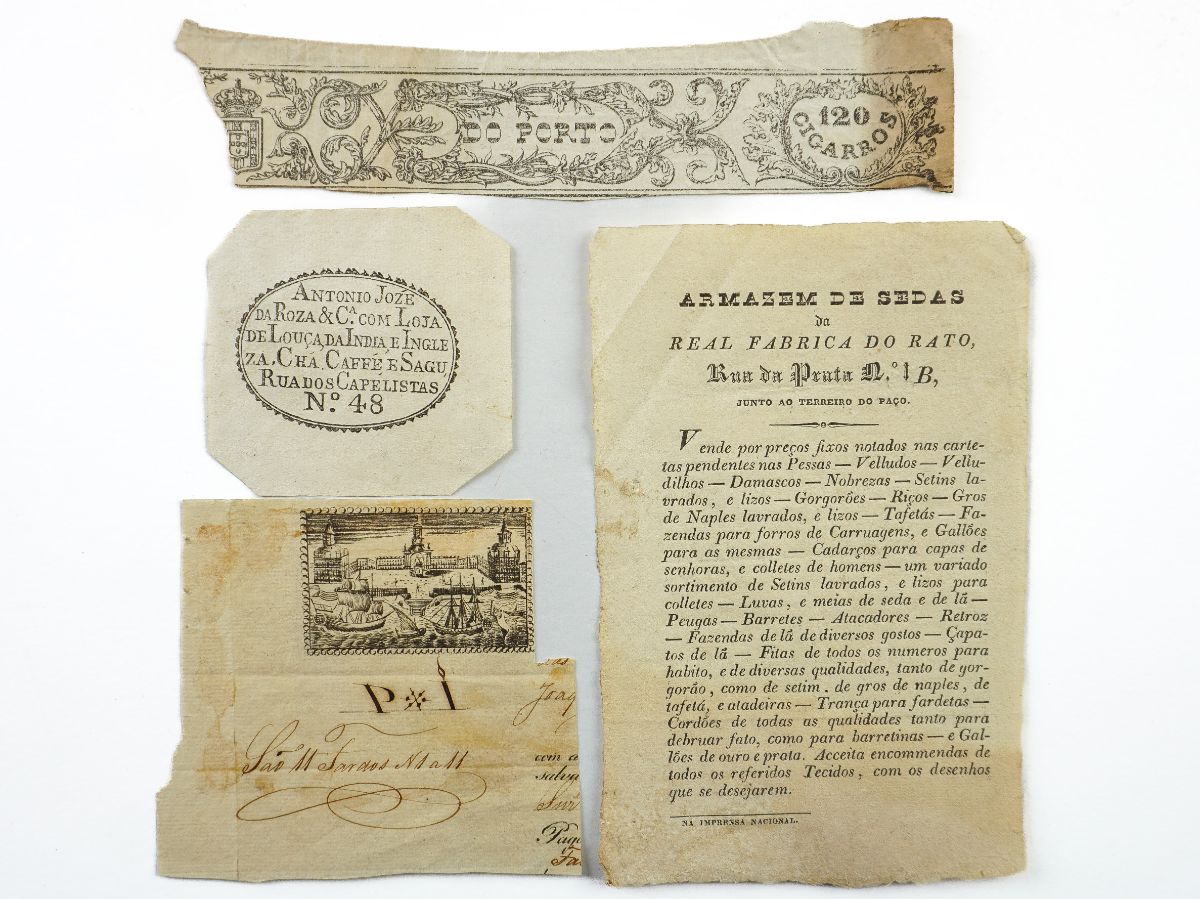 DO PORTO
120
CIGARROS
ANTONIO JOZE
DA ROZA & C.A COM LOJA
DE LOUÇA DA INDIA, E INGLE
ZA, CHÁ, CAFFÉ, E SAGU,
RUA DOS CAPELISTAS
N.º 48
ARMAZEM DE SEDAS
da
REAL FABRICA DO RATO,
Rua da Prata N.º 1 B,
JUNTO AO TERREIRO DO PAÇO.
Vende por preços fixos notados nas carte-
tas pendentes nas Pessas — Velludos — Vellu-
dilhos — Damascos — Nobrezas — Setins la-
vrados, e lizos — Gorgorões — Riços — Gros
de Naples lavrados, e lizos — Tafetás — Fa-
zendas para forros de Carruagens, e Gallões
para as mesmas — Cadarços para capas de
senhoras, e colletes de homens — um variado
sortimento de Setins lavrados, e lizos para
colletes — Luvas, e meias de seda e de lã —
Peugas — Barretes — Atacadores — Retroz
— Fazendas de lã de diversos gostos — Çapa-
tos de lã — Fitas de todos os numeros para
habito, e de diversas qualidades, tanto de gor-
gorão, como de setim, de gros de naples, de
tafetá, e atadeiras — Trança para fardetas —
Cordões de todas as qualidades tanto para
debruar fato, como para barretinas — e Gal-
lões de ouro e prata. Acceita encommendas de
todos os referidos Tecidos, com os desenhos
que se desejarem.
NA IMPRENSA NACIONAL.
P * I
Joaq
São 11 Fardos
com a
salva
Pago